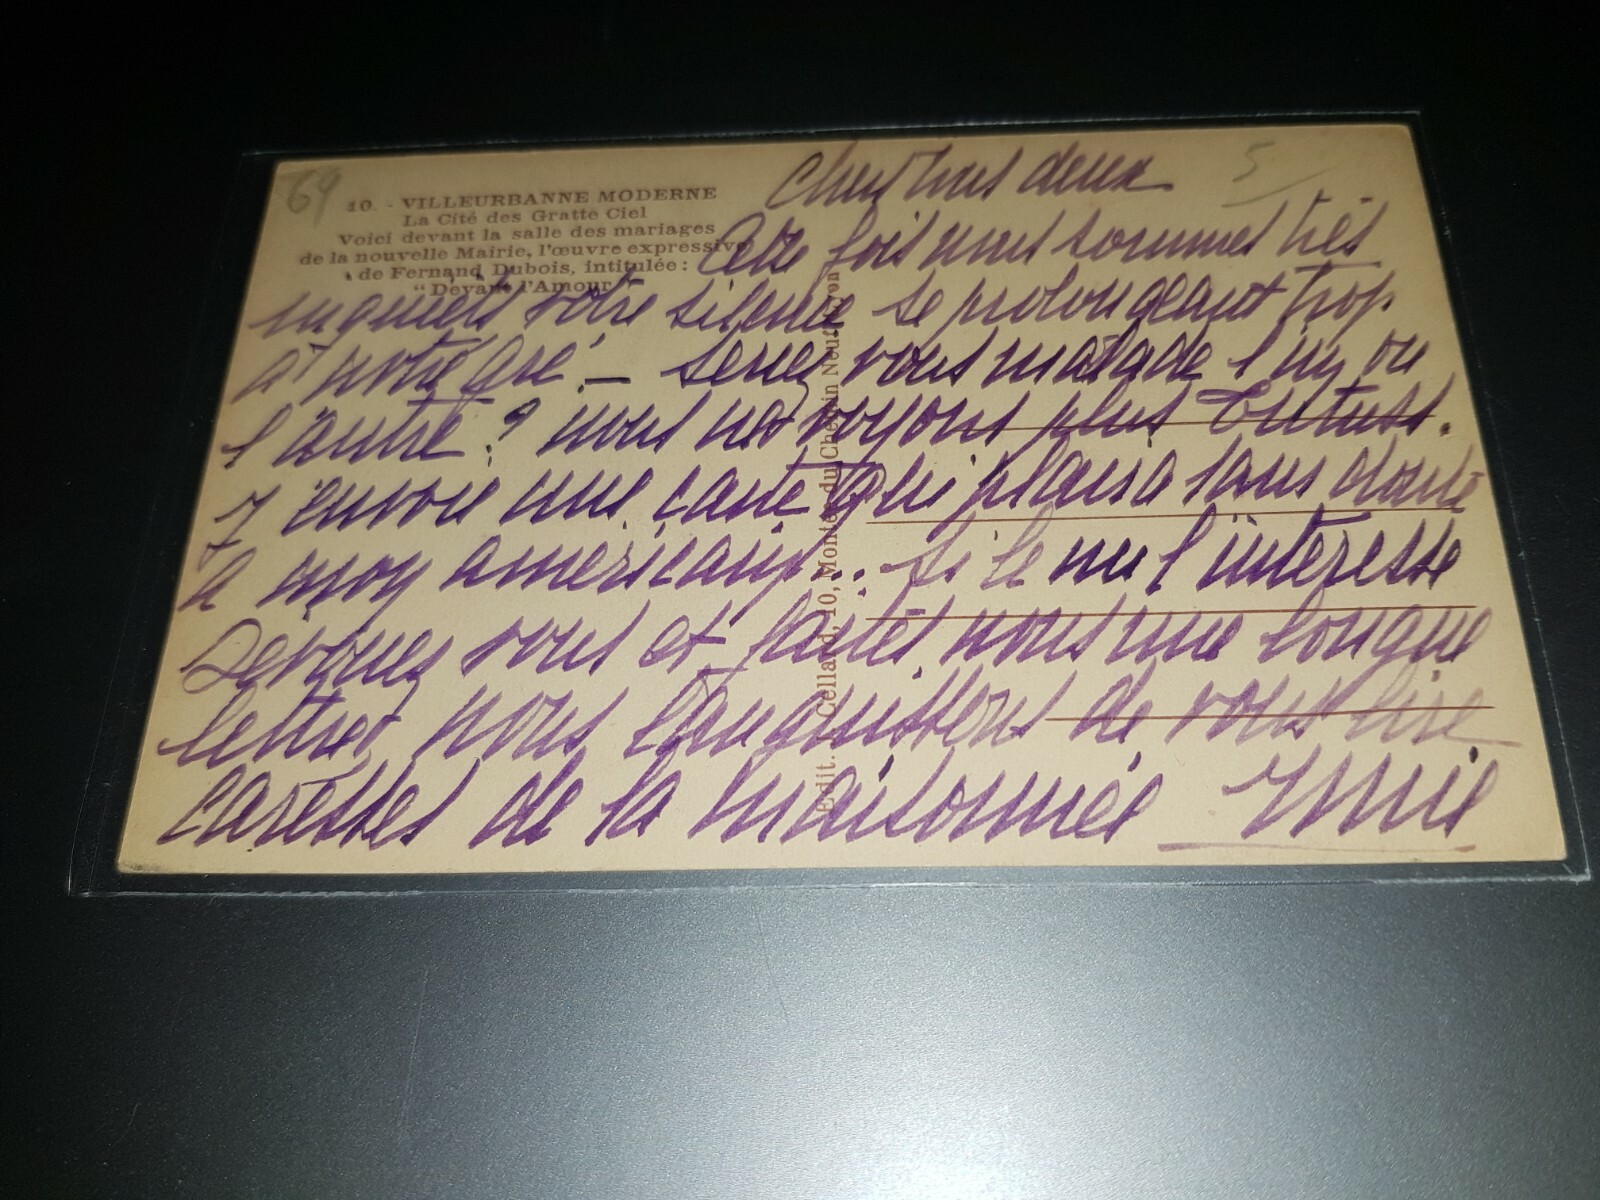 69
5
10. - VILLEURBANNE MODERNE
La Cité des Gratte Ciel
Voici devant la salle des mariages
de la nouvelle Mairie, l'œuvre expressive
de Fernand Dubois, intitulée:
“ Devant l'Amour
Edit. Cellard, 10, Montée du Chemin Neuf Lyon
Chers tous deux
Cette fois nous sommes très
inquiets votre silence se prolongeant trop
à notre gré. — seriez vous malade l'un ou
l'autre? nous ne voyons plus
J'envoie une carte qui plaira sans doute
à mon américain... si le nu l'intéresse
vous et faites nous une longue
lettre nous languissons de vous lire
caresses de la maisonnée